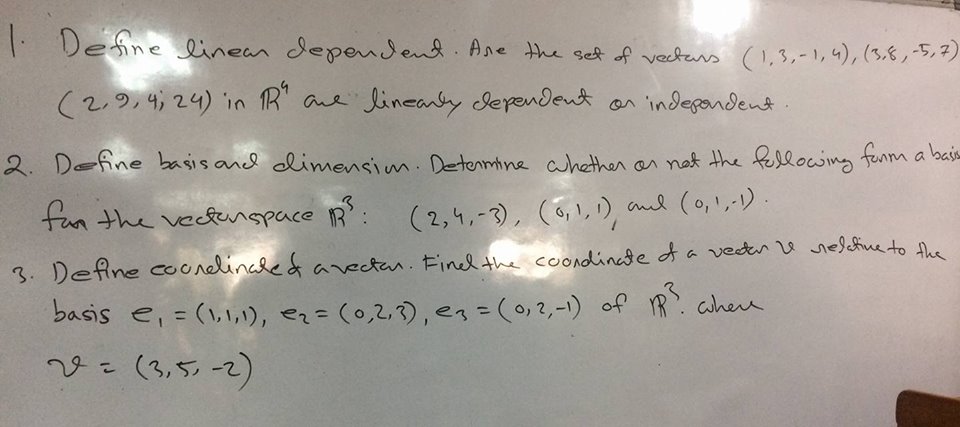 1. Define linear dependent. Are the set of vectors (1,3,-1,4), (3,8,-5,7)
(2,9,4,24) in ℝ⁴ are linearly dependent or independent.
2. Define basis and dimension. Determine whether or not the following form a basis
for the vector space ℝ³: (2,4,-3), (0,1,1), and (0,1,-1).
3. Define coordinate of a vector. Find the coordinate of a vector v relative to the
basis e₁ = (1,1,1), e₂ = (0,2,3), e₃ = (0,2,-1) of ℝ³. where
v = (3,5,-2)